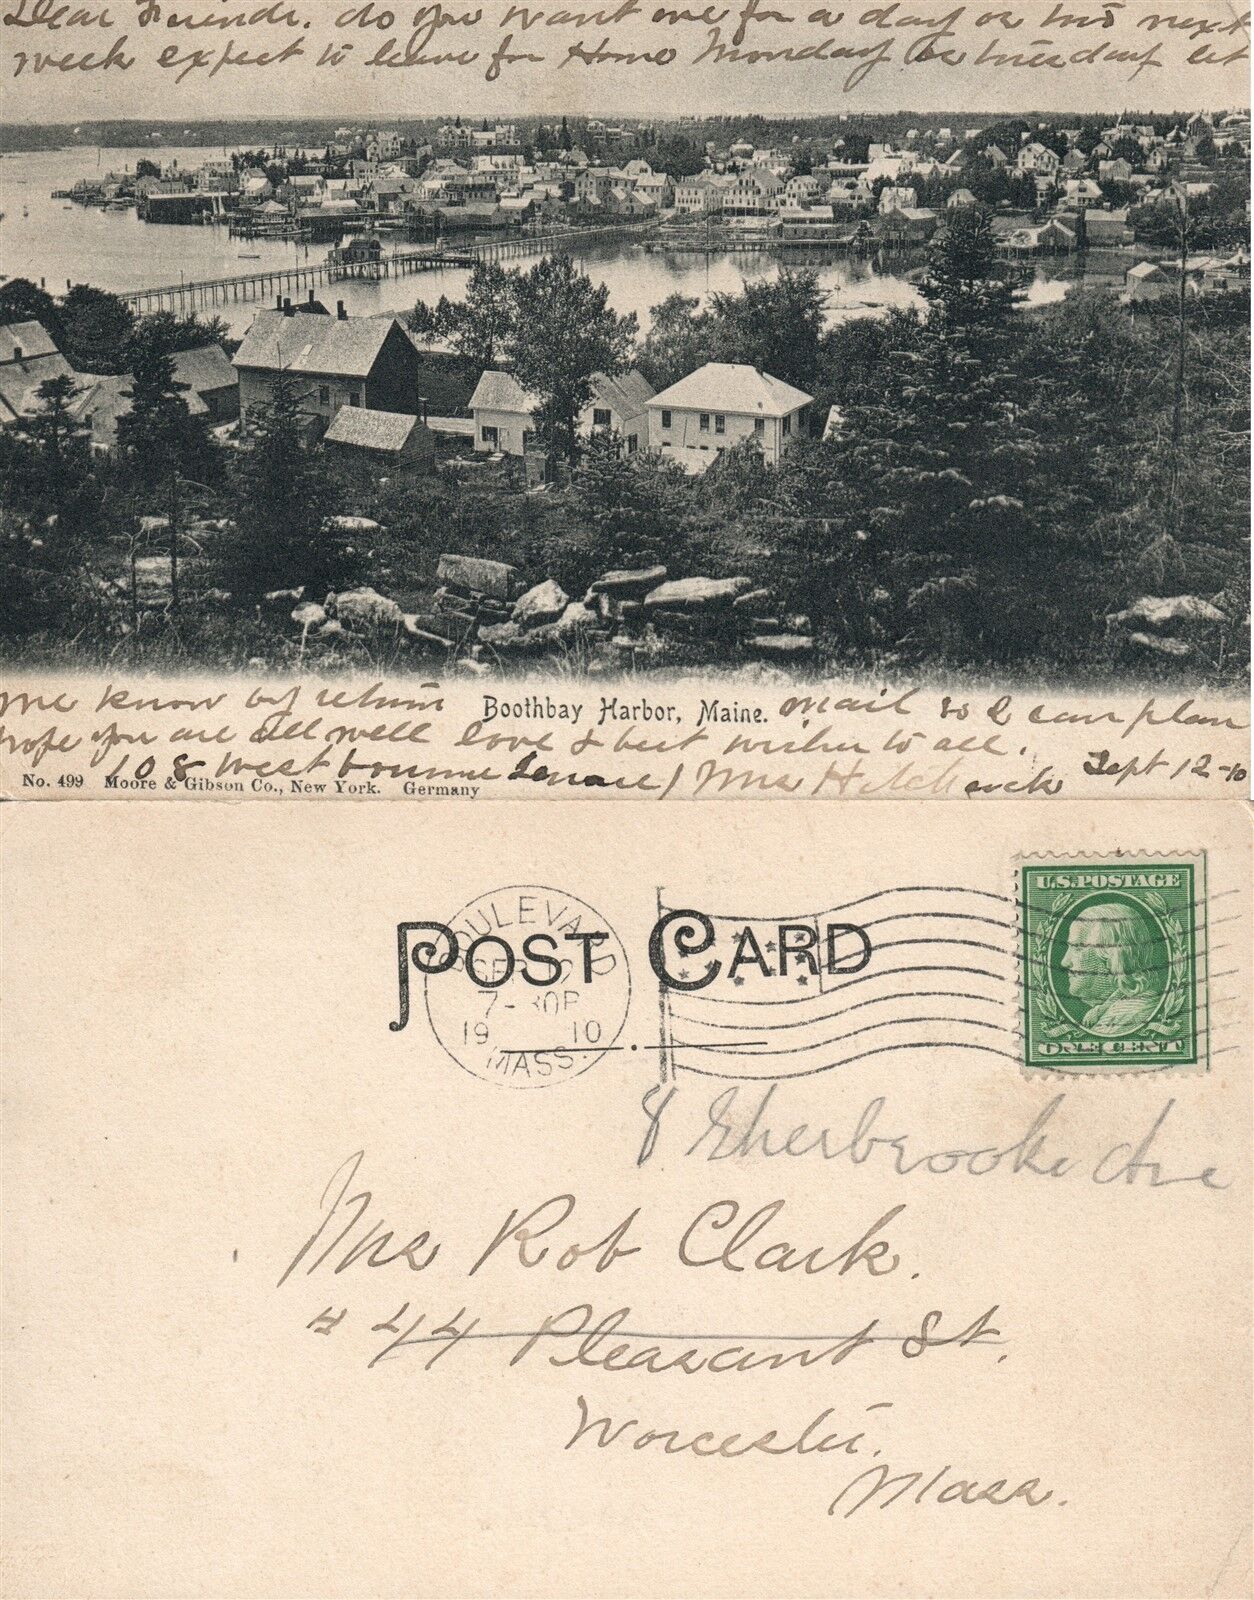 Dear Friends. do you want me for a day or two next
week expect to leave for Home Monday or tuesday let
me know by return Boothbay Harbor, Maine. mail so I can plan
hope you are all well love & best wishes to all.
108 Westbourne Terrace / Mrs Hitchcock Sept 12-10
No. 499 Moore & Gibson Co., New York. Germany
POST CARD
BOULEVARD
SEP 12
7-30P
19 10
MASS.
U.S. POSTAGE
ONE CENT
8 Sherbrooke Ave
Mrs Rob Clark.
# 44 Pleasant St.
Worcester.
Mass.